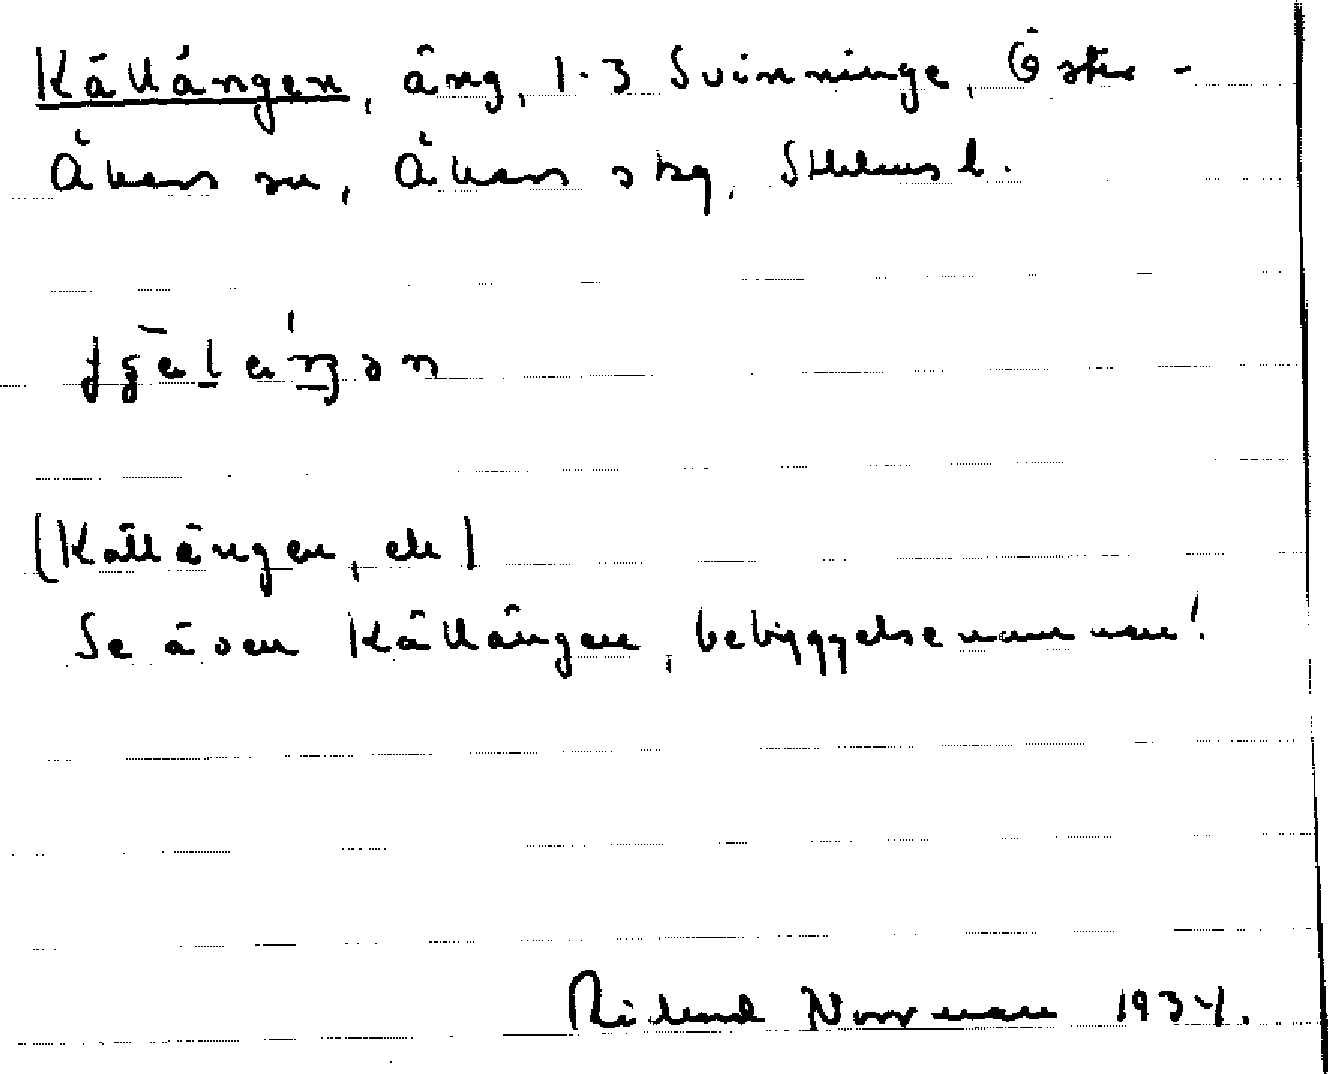 Källängen, äng, 1-3 Svinninge, Öster-
Åkers sn, Åkers skg, Sthlms l.
(Källängen, ek)
Se även Källängen, bebyggelsenamnen!
Rickard Norrman 1934.